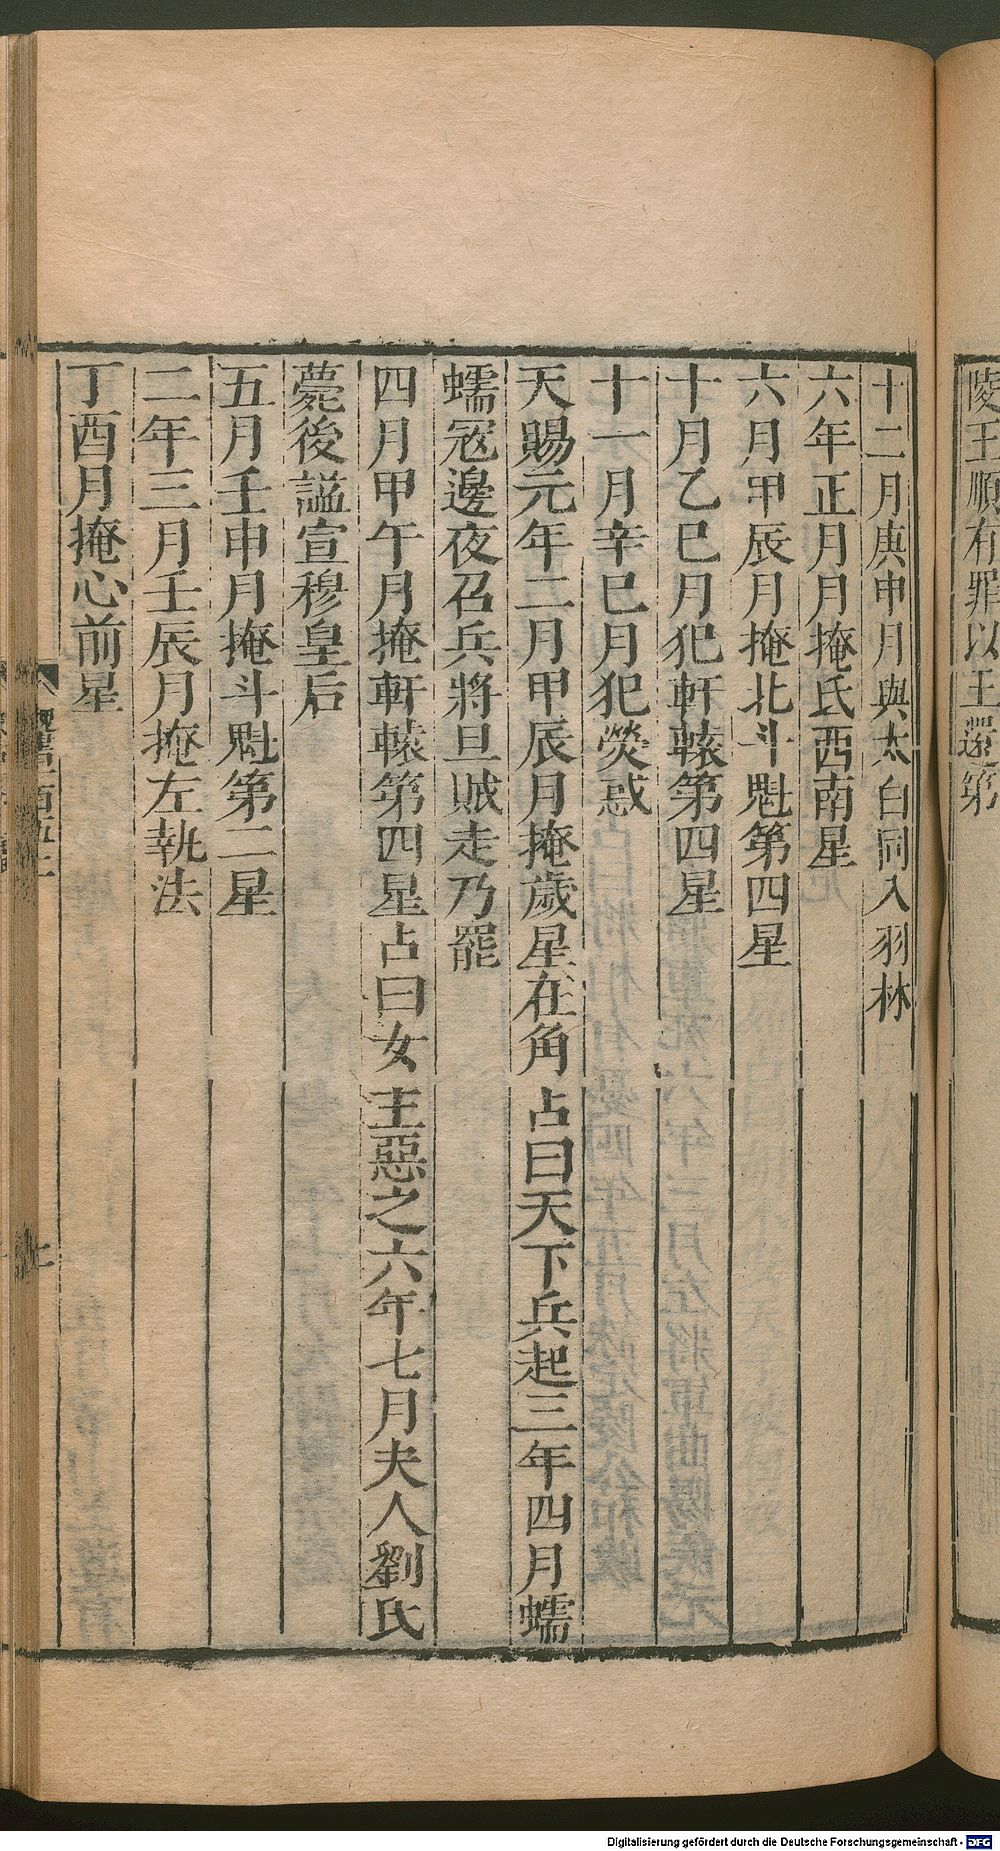 陵王順有罪以王還第
十二月庚申月與太白同入羽林
六年正月月掩氐西南星
六月甲辰月掩北斗魁第四星
十月乙巳月犯軒轅第四星
十一月辛巳月犯熒惑
天賜元年二月甲辰月掩歲星在角占曰天下兵起三年四月蠕
蠕寇邊夜召兵將旦賊走乃罷
四月甲午月掩軒轅第四星占曰女主惡之六年七月夫人劉氏
薨後謚宣穆皇后
五月壬申月掩斗魁第二星
二年三月壬辰月掩左執法
丁酉月掩心前星
Digitalisierung gefördert durch die Deutsche Forschungsgemeinschaft - DFG